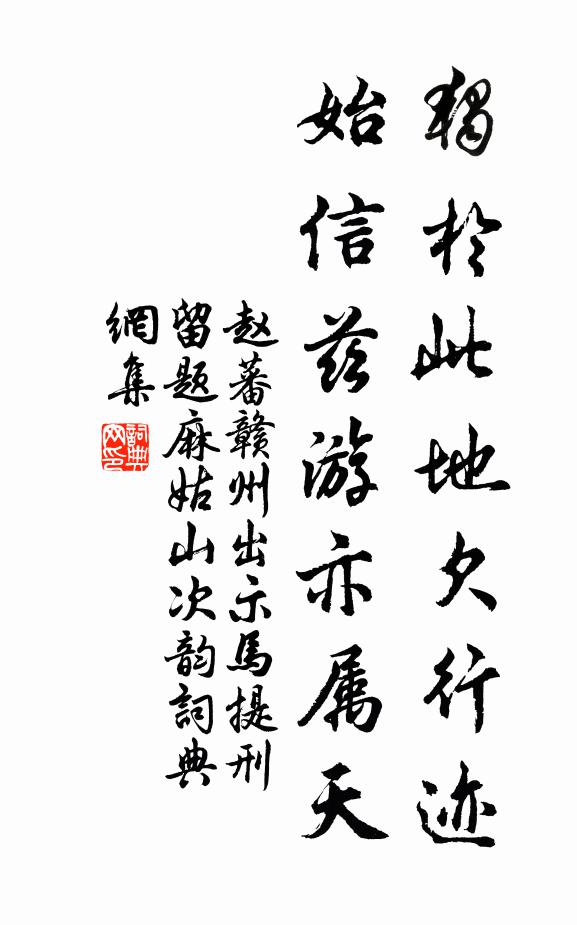 獨於此地欠行迹
始信茲游亦属天
赵蕃赣州出示馬提刑
留题麻姑山次韵詞典
網集
詞典
网印